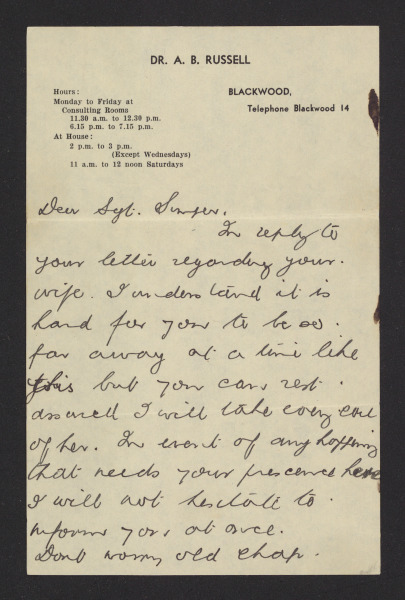 DR. A. B. RUSSELL
Hours:
Monday to Friday at
Consulting Rooms
11.30 a.m. to 12.30 p.m.
6.15 p.m. to 7.15 p.m.
At House:
2 p.m. to 3 p.m.
(Except Wednesdays)
11 a.m. to 12 noon Saturdays
BLACKWOOD,
Telephone Blackwood 14
Dear Sgt.
In reply to
your letter regarding your.
wife. I understand it is
hard for you to be so.
far away at a time like
this but you can rest.
assured I will take every care
of her. In event of any happening
that needs your prescence here
I will not hesitate to.
inform you at once.
Dont worry old chap.